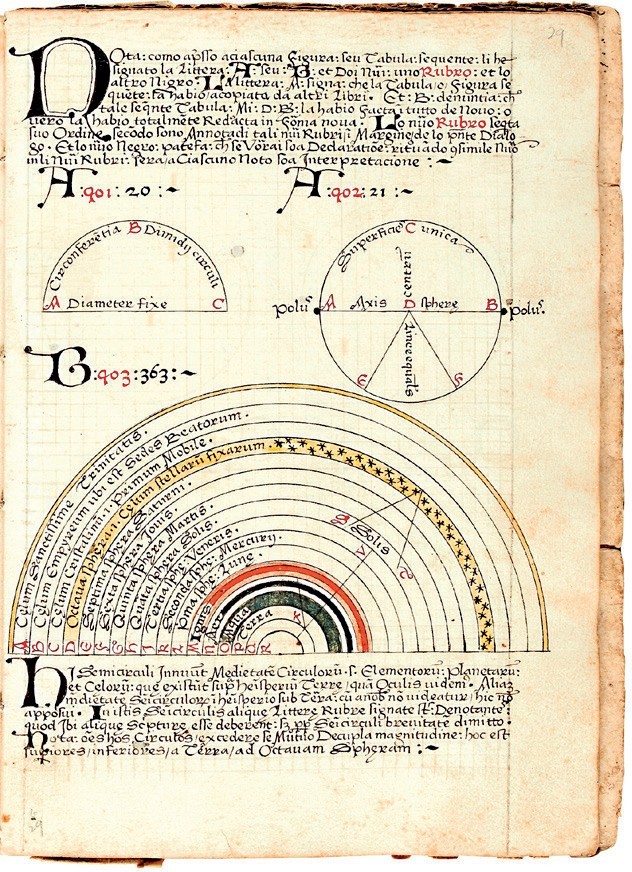 29
Nota: como apsso aciascuna Figura: seu Tabula: sequente: li he
signato la Littera: A: seu: B: et Doi Nui: uno Rubro: et lo
altro Negro: La littera: A: signa: che la Tabula: o Figura se
quete: fa habio acopiata da altri libri. Et: B: denuntia: ch
tale seqnte Tabula: Mi: D: B: la habio Facta i tutto de Nouo: o
uero la habio totalmete Redacta in Foma noua. Lo nuo Rubro legta
suo Ordine secodo sono Annotadi tali nui Rubrisi Margine de lo pnte Dialo
go. Et lo nuo Negro: patefa: ch se Vorai soa Declaratioe
Nui Rubri: a Ciascuno Noto soa Interpretacione :~
A : 901 : 20 :~ A : 902 : 21 :~
Circonferetia B Dimidij circuli
A Diameter fixe C
Superficie C unica
Centrum
Polus A Axis D sphere B Polus
Linee equales
E F
B : 903 : 363 :~
Celum Sanctissime Trinitatis.
Celum Empyreum ubi est Sedes Beatorum.
Celum Cristallinu i Primum Mobile.
Octaua sphera ut. Celum stellaru fixarum
Septima sphera Saturni.
Sexta sphera Jouis.
Quinta sphera Martis.
Quarta sphera Solis.
Tertia sphe: Veneris.
Secoda sphe: Mercury.
Pma sphe: Lune.
Ignis
Aer
Aqua
Terra
Solis
V
K
A B C D E F G H I K L M N O P Q R
Hi Semicirculi Innuut Medietate Circuloru. s. Elementoru: Planetaru:
et Celoru: que existut sup heisperiu Terre, qua Oculis uidem. Alia
medietate Seicirculoru i heisperio sub Terra: cu a nob no uideatur, hic no
apposui. In istis Seicirculis alique Littere Rubre signate st: Denotante
quod Ibi alique Scpture esse deberent: Seicirculi breuitate dimitto.
Nota: oes hos Circulos, excedere se Mutuo Decupla magnitudine: hoc est
supiores, inferiores, a Terra, ad Octauam Spheram :~
29